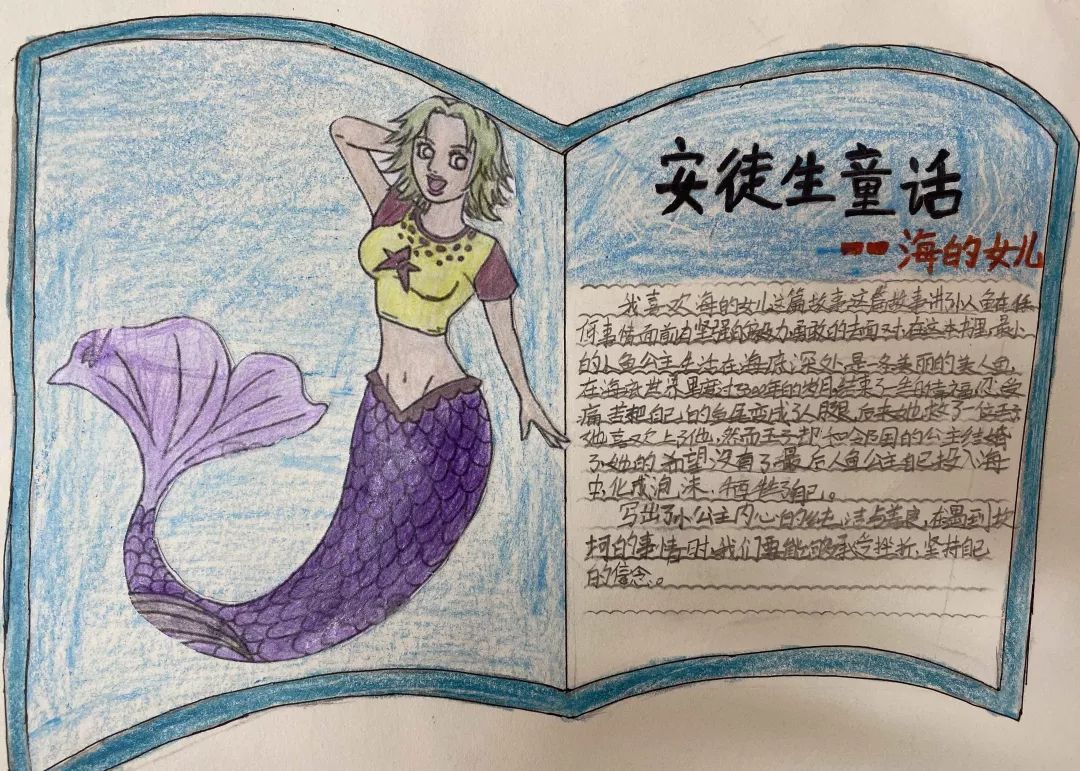 安徒生童话
--海的女儿
我喜欢海的女儿这篇故事,这篇故事讲了小人鱼在任
何事情面前由坚强的毅力勇敢的去面对,在这本书里,最小
的人鱼公主生活在海底深处是一条美丽的美人鱼,
在海底世界里度过300年的岁月,结束了一生的幸福,忍受
痛苦把自己的鱼尾变成了人腿,后来她救了一位王子
她喜欢上了他,然而王子却和邻国的公主结婚
了她的希望没有了最后人鱼公主自己投入海
中化成泡沫,牺牲了自己。
写出了小公主内心的纯洁与善良,在遇到
的事情时,我们要能够承受挫折,坚持自己
的信念。